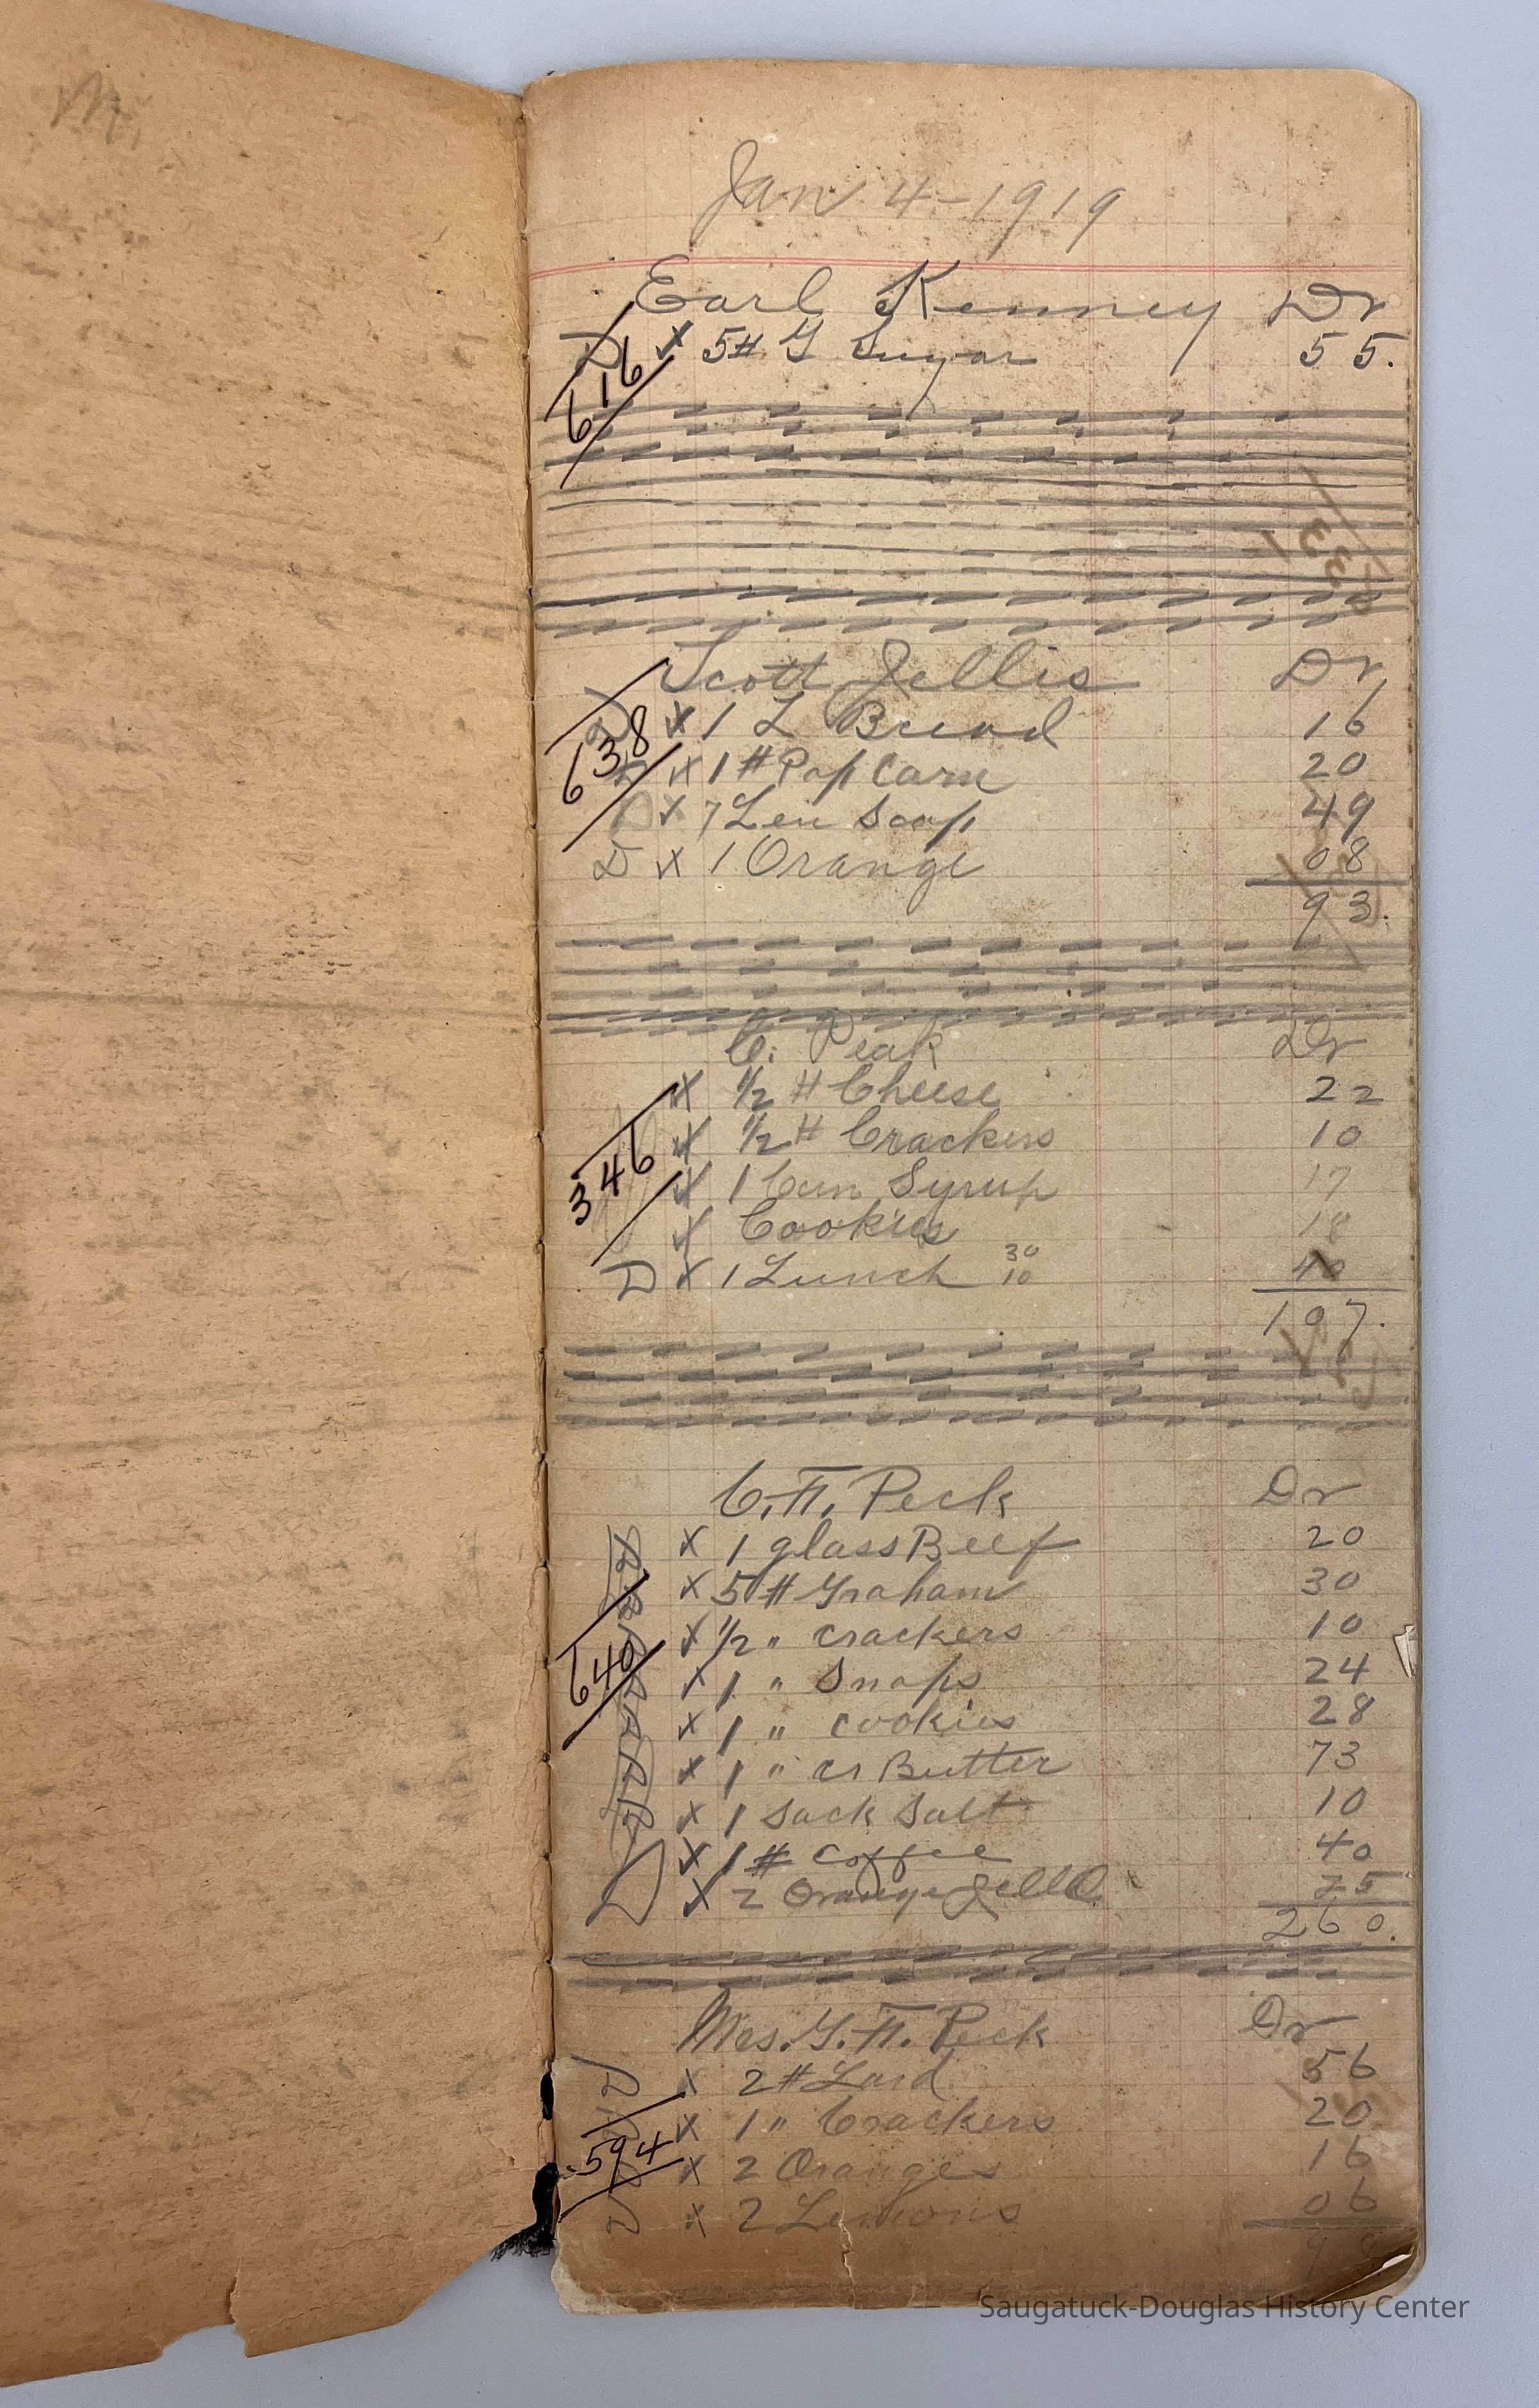 M.
Jan 4-1919
Earl Kenney Dr
D x 5# G Sugar 55.
616
33
Scott Jellis Dr
D x 1 L Bread 16
D x 1 # Pop Corn 20
D x 7 Len Soap 49
D x 1 Orange 08
93.
638
C. Peak Dr
x 1/2 # Cheese 22
x 1/2 # Crackers 10
x 1 Can Syrup 17
x Cookies 18
D x 1 Lunch 30 10 40
107.
346
C. H. Peck Dr
D x 1 glass Beef 20
D x 5 # Graham 30
x 1/2 " crackers 10
D x 1 " Snaps 24
D x 1 " cookies 28
D x 1 " cr Butter 73
D x 1 Sack Salt 10
x 1 # coffee 40
D x 2 Orange Jell O. 25
260.
640
Mrs. G. H. Peck Dr
D x 2 # Lard 56
D x 1 " Crackers 20
D x 2 Oranges 16
D x 2 Lemons 06
98
594
Saugatuck-Douglas History Center